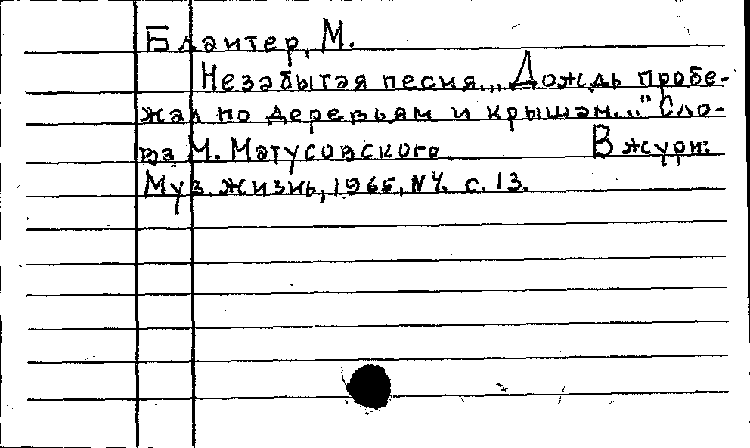 Блантер, М.
Незабытая песня. „Дождь пробе-
жал по деревьям и крышам..." Сло-
ва М. Матусовского. В журн:
Муз. жизнь, 1965, N4. с. 13.